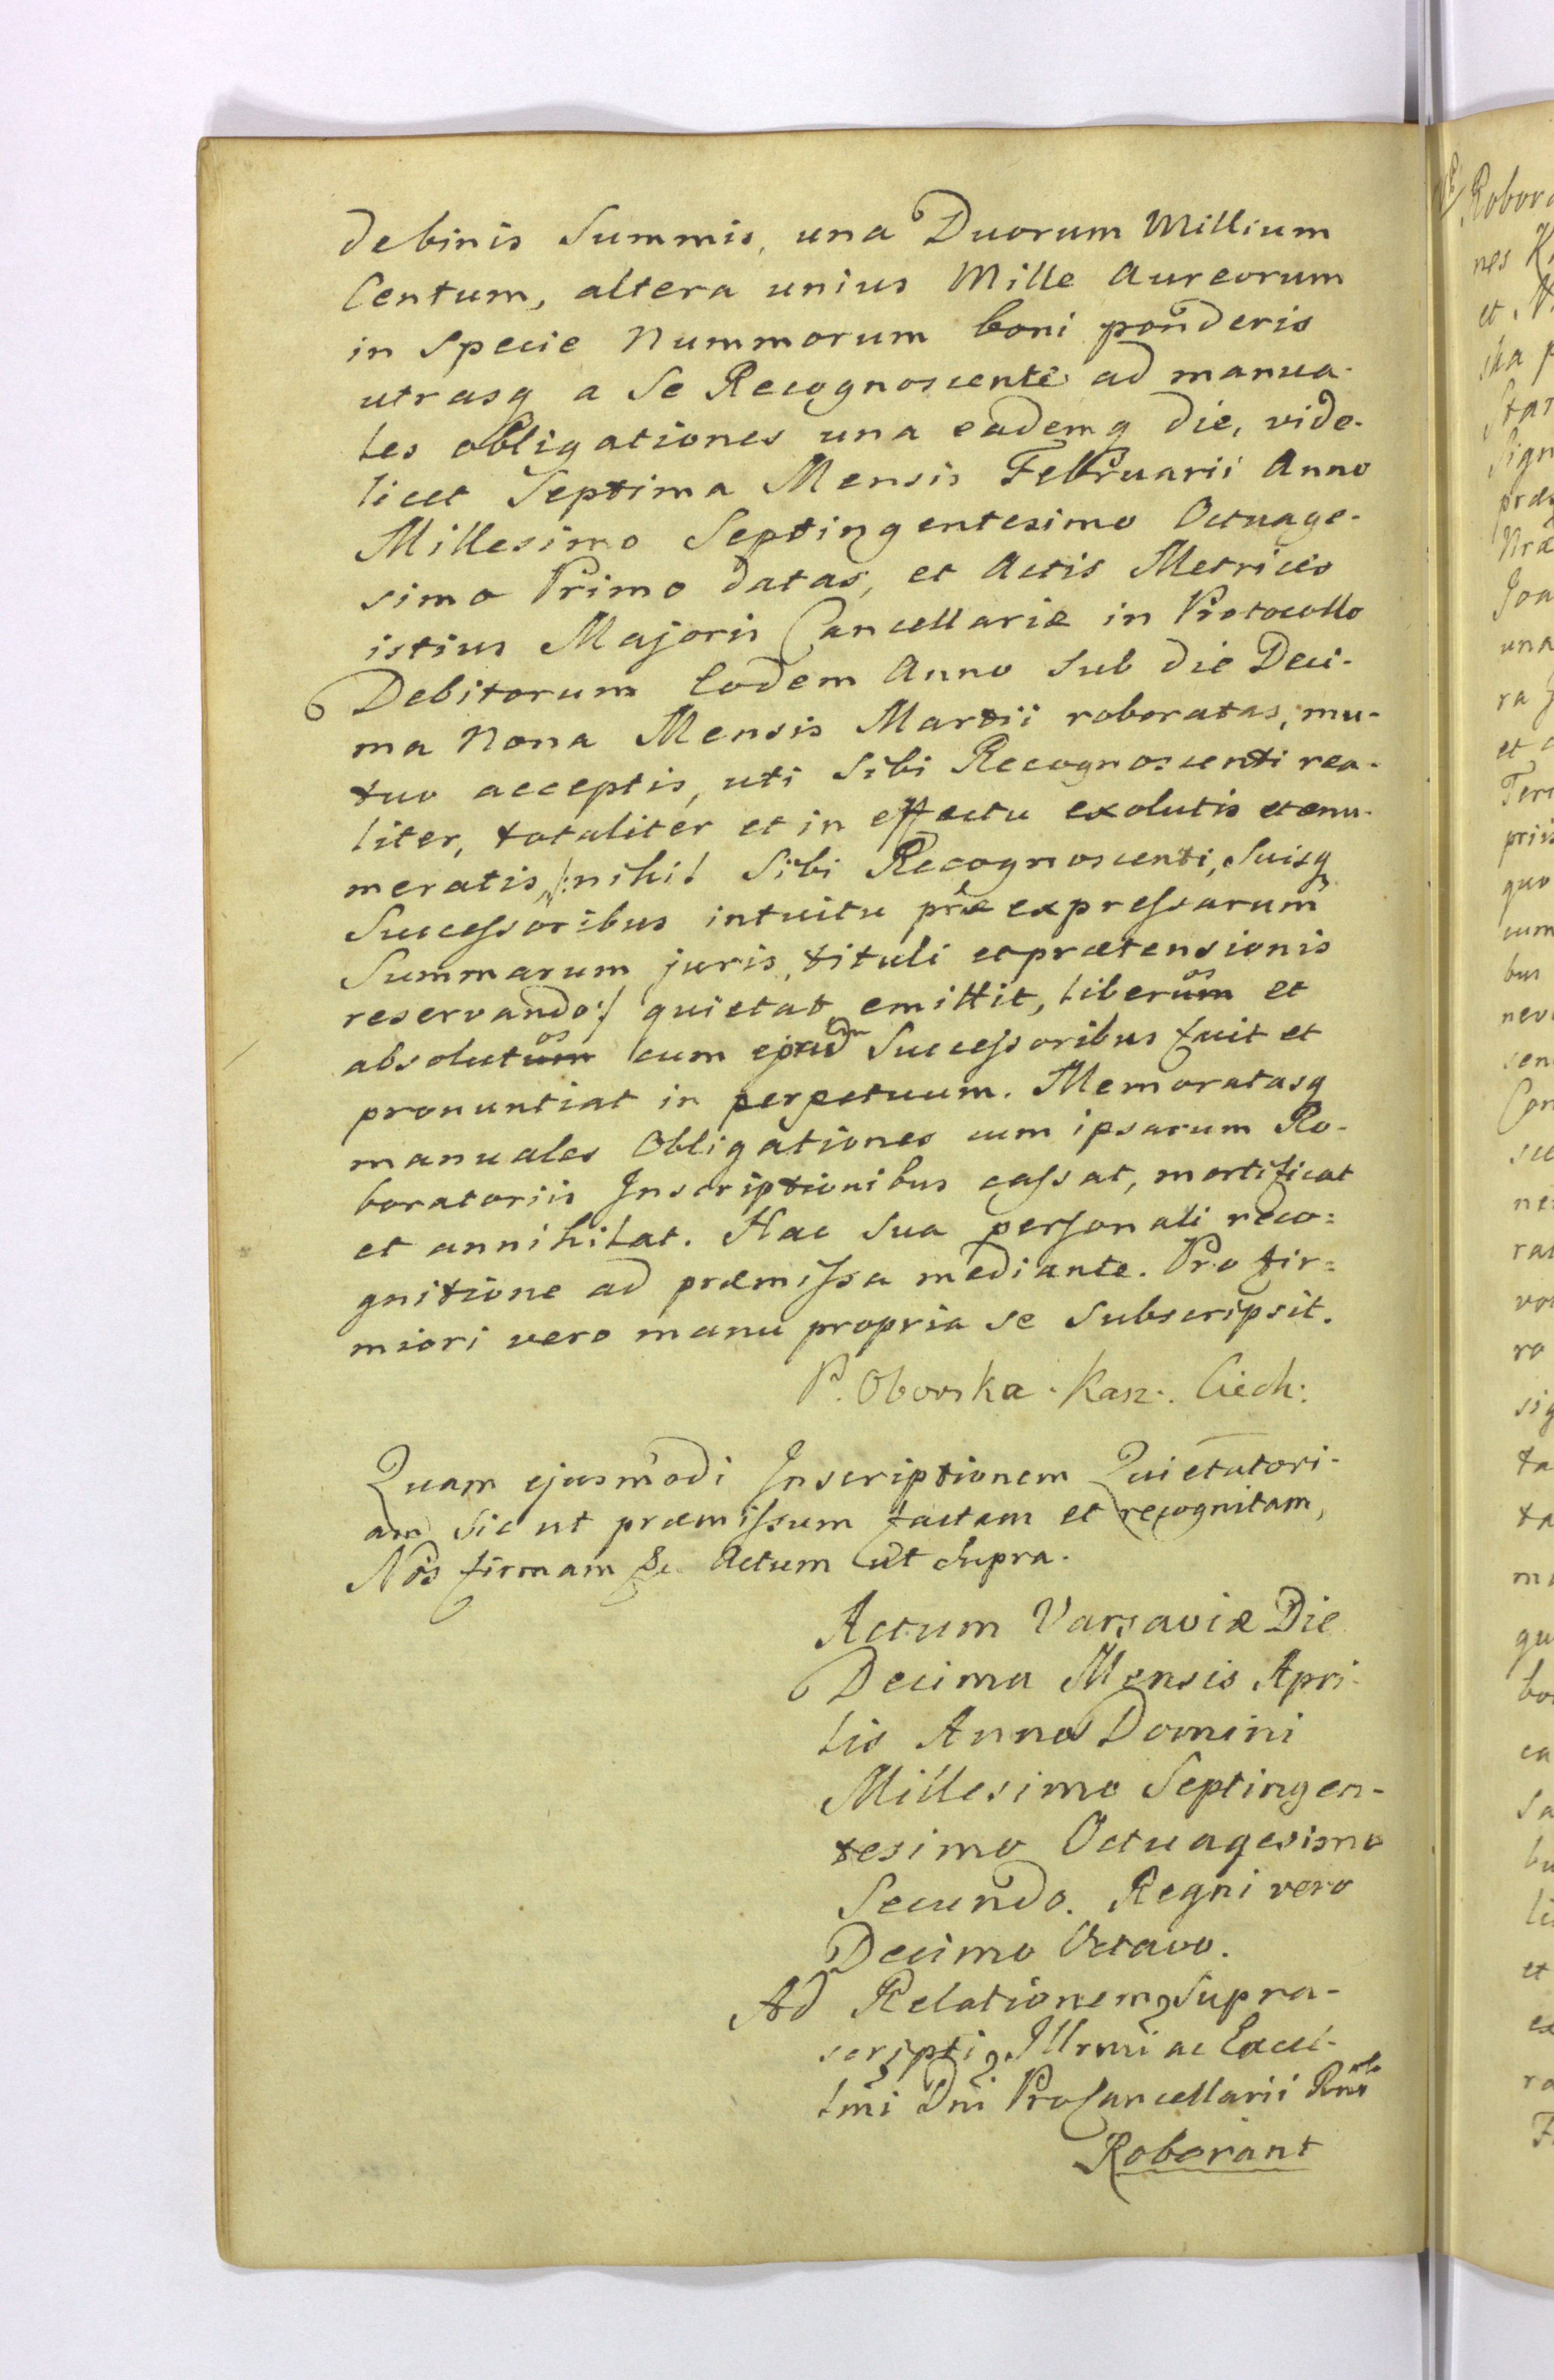 debinis Summis, una Duorum Millium
Centum, altera unius Mille Aureorum
in Specie Nummorum boni ponderis
utrasq a Se Recognoscente ad manua-
les obligationes una eademq die, vide-
licet Septima Mensis Februarii Anno
Millesimo Septingentesimo Octuage-
simo Primo datas, et Actis Metrices
istius Majoris Cancellariæ in Protocollo
Debitorum Eodem Anno Sub die Deci-
ma Nona Mensis Martii roboratas, mu-
tuo acceptis, uti Sibi Recognoscenti rea-
liter, totaliter et in effectu exolutis etenu-
meratis, /:nihil Sibi Recognoscenti, Suisq
Successoribus intuitu præexpressarum
Summarum juris, tituli et prætensionis
reservando:/ quietat, emittit, liberos et
absolutos cum Successoribus facit et
pronuntiat in perpetuum. Memoratasq
manuales Obligationes cum ipsarum Ro-
boratoriis Inscriptionibus cassat, mortificat
et annihilat. Hac Sua personali reco=
gnitione ad præmissa mediante. Pro fir=
miori vero manu propria se Subscripsit.
P. Oborska. Kasz. Ciech:
Quam ejusmodi Inscriptionem Quietatori-
am Sic ut præmissum factam et recognitam,
Nos firmam &c. Actum ut Supra.
Actum Varsaviæ Die
Decima Mensis Apri-
lis Anno Domini
Millesimo Septingen-
tesimo Octuagesimo
Secundo. Regni vero
Decimo Octavo.
Ad Relationem Supra-
scripti Illrmi ac Excel-
lmi Dni ProCancellarii Rni
Roborant